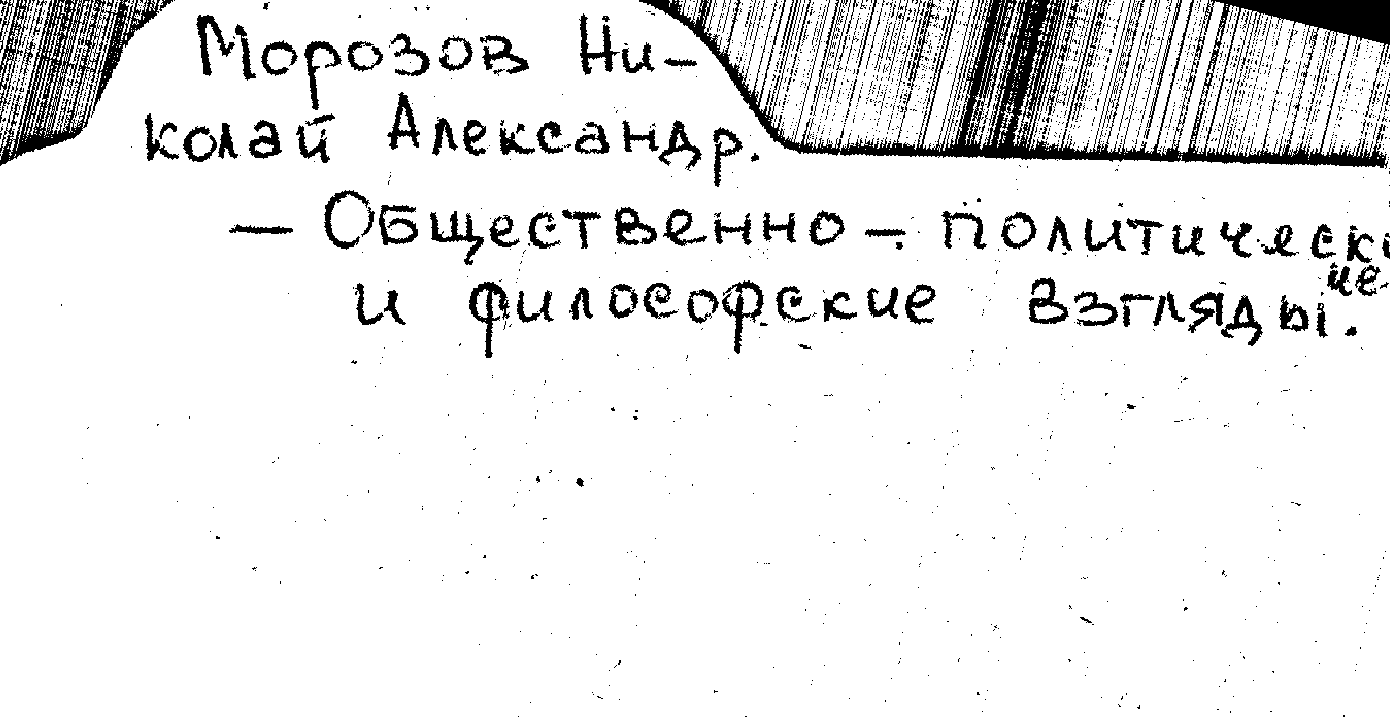 Морозов Ни-
колай Александр.
— Общественно-политически
ие
и философские взгляды.